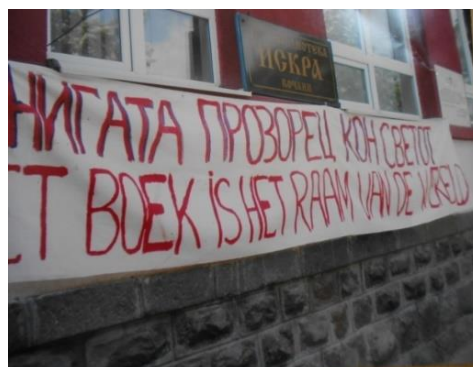 ИСКРА
КОЧАНИ
НИГАТА ПРОЗОРЕЦ КОН СВЕТОТ
ET BOEK iS HET RAAM VAN DE WERELD